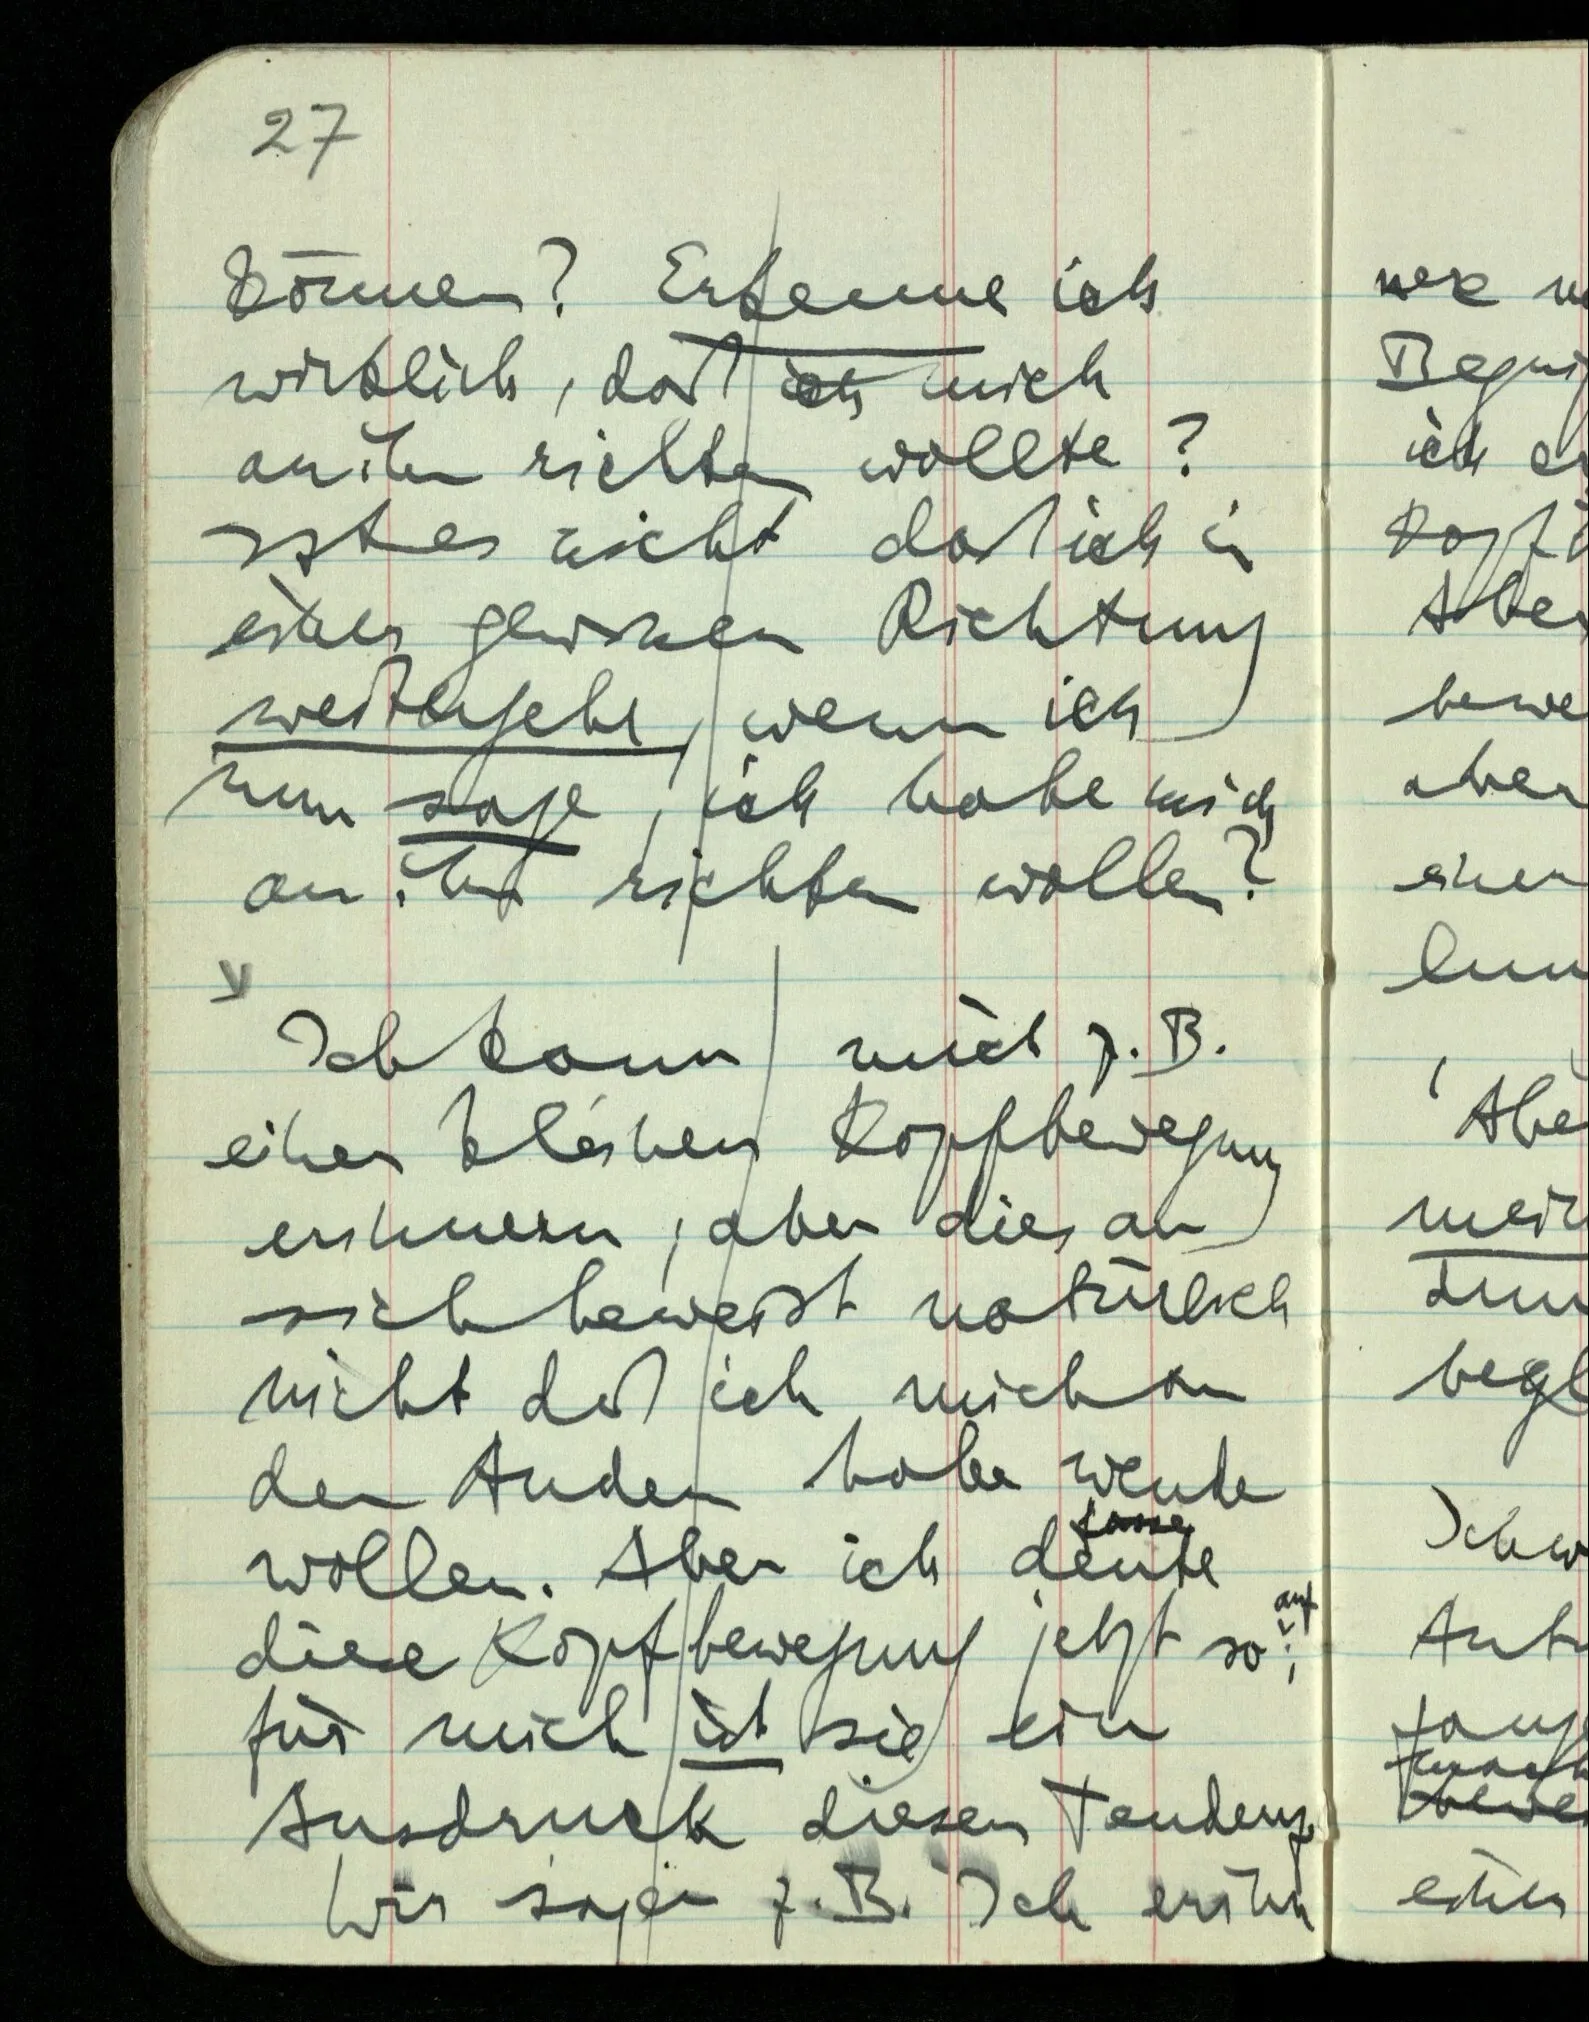 27
können? Erkenne ich
wirklich, daß ich mich
an ihn richten wollte?
Ist es nicht daß ich in
einer gewissen Richtung
weitergehe, wenn ich
nun sage, ich habe mich
an ihn richten wollen?
Ich kann mich z.B.
einer kleinen Kopfbewegung
erinnern, aber dies an
sich beweist natürlich
nicht daß ich mich an
den Andern habe wenden
wollen. Aber ich deute
fasse
diese Kopfbewegung jetzt so
auf;
für mich ist sie ein
Ausdruck dieser Tendenz
Wir sagen z.B. Ich erinn
Aber
bewe
aber
einen
Abe
Ich w
einer